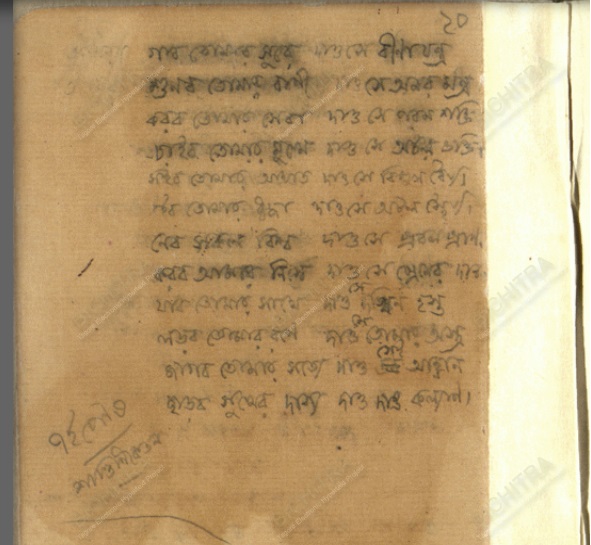 ২০
গাব তোমার সুরে দাও সে বীণাযন্ত্র
শুনব তোমার বাণী দাও সে অমর মন্ত্র
করব তোমার সেবা দাও সে পরম শক্তি
চাইব তোমার মুখে দাও সে অচল ভক্তি।
সইব তোমার আঘাত দাও সে বিপুল ধৈর্য্য।
বইব তোমার ধ্বজা দাও সে অটল স্থৈর্য্য।
নেব সকল বিশ্ব দাও সে প্রবল প্রাণ,
করব আমায় নিঃস্ব দাও সে প্রেমের দান
যাব তোমার সাথে দাও সে দখিন হস্ত
লড়ব তোমার রণে দাও সে তোমার অস্ত্র
জাগব তোমার সত্যে দাও সেই আহ্বান
ছাড়ব সুখের দাস্য দাও দাও কল্যাণ।
৭ই পৌষ
শান্তিনিকেতন